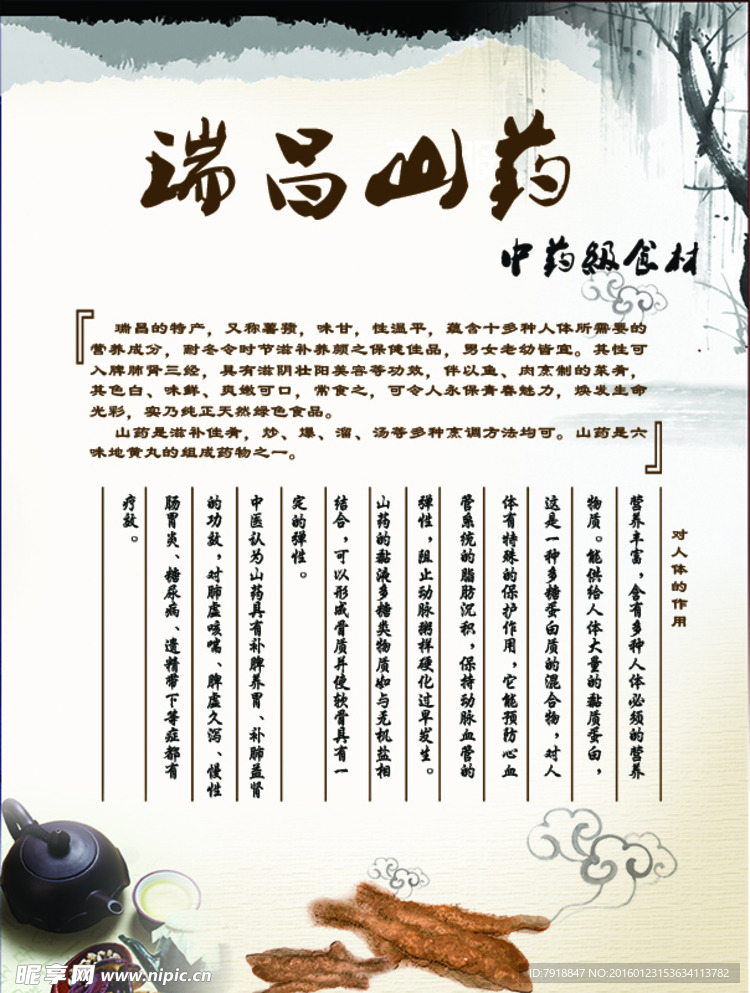 瑞昌山药
中药级食材
瑞昌的特产，又称薯蓣，味甘，性温平，蕴含十多种人体所需要的
营养成分，耐冬令时节滋补养颜之保健佳品，男女老幼皆宜。其性可
入脾肺肾三经，具有滋阴壮阳美容等功效，伴以鱼、肉烹制的菜肴，
其色白、味鲜、爽嫩可口，常食之，可令人永保青春魅力，焕发生命
光彩，实乃纯正天然绿色食品。
山药是滋补佳肴，炒、爆、溜、汤等多种烹调方法均可。山药是六
味地黄丸的组成药物之一。
对人体的作用
营养丰富，含有多种人体必须的营养
物质。能供给人体大量的黏质蛋白，
这是一种多糖蛋白质的混合物，对人
体有特殊的保护作用，它能预防心血
管系统的脂肪沉积，保持动脉血管的
弹性，阻止动脉粥样硬化过早发生。
山药的黏液多糖类物质如与无机盐相
结合，可以形成骨质并使软骨具有一
定的弹性。
中医认为山药具有补脾养胃、补肺益肾
的功效，对肺虚咳喘、脾虚久泻、慢性
肠胃炎、糖尿病、遗精带下等症都有
疗效。
昵享网 www.nipic.cn
ID:7918847 NO:20160123153634113782